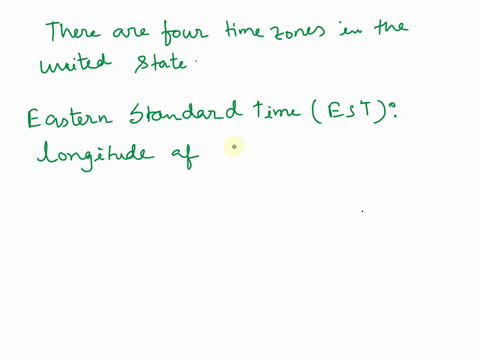 There are four time zones in the
united state.
Eastern Standard time (EST):
longitude af